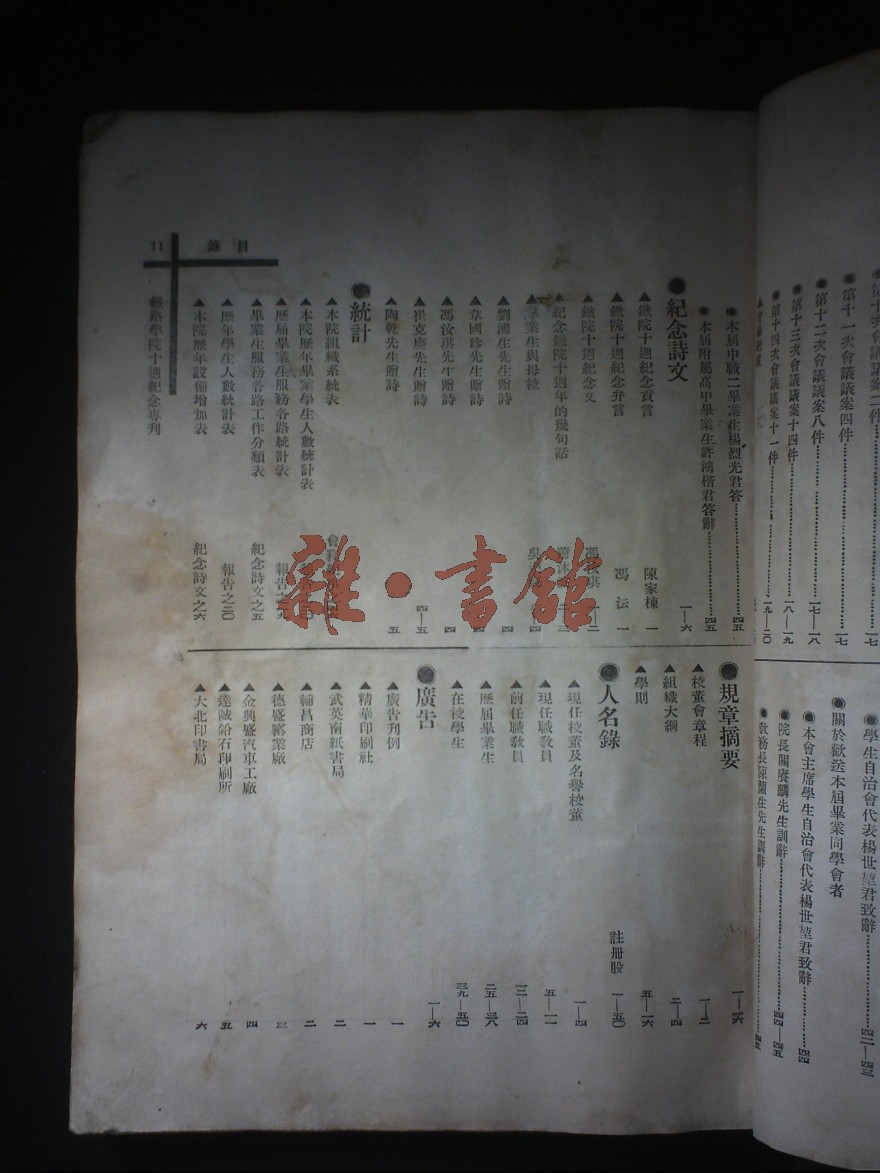 第十次會議議案二件……一七
第十一次會議議案四件……一七
第十二次會議議案八件……一七—一八
第十三次會議議案十四件……一八—一九
第十四次會議議案十一件……一九—二〇
●學生自治會代表楊世堃君致辭……四二—四三
●關於歡送本屆畢業同學會者
●本會主席學生自治會代表楊世堃君致辭……四四
●院長關賡麟先生訓辭……四四—四五
●教務長陳蘭生先生訓辭……四五
目錄
11
鐵路學院十週紀念專刊
●本屆中職二畢業生楊烈光君答……四五
●本屆附屬高中畢業生許鴻楷君答辭……四五
●紀念詩文 一—六
▲鐵院十週紀念貢言 陳家棟 一
▲鐵院十週紀念弁言 馮沄 一
▲鐵院十週紀念文 馮汝琪 一—二
▲紀念鐵院十週年的幾句話 二—三
▲畢業生與母校 吳 四
▲劉鴻生先生贈詩 四
▲韋國珍先生贈詩 四
▲馮汝琪先生贈詩 四
▲崔克慶先生贈詩 四—五
▲陶乾先生贈詩 五
●統計
▲本院組織系統表 會務
▲本院歷年畢業學生人數統計表
▲歷屆畢業生服務各路統計表 報告之一九
▲畢業生服務各路工作分類表 紀念詩文之五
▲歷年學生人數統計表 報告之二〇
▲本院歷年設備增加表 紀念詩文之六
●規章摘要 一—一六
▲校董會章程 一—二
▲組織大綱 二—四
▲學則 五—一六
●人名錄 註冊股 一—五〇
▲現任校董及名譽校董 一—四
▲現任職教員 五—一一
▲前任職教員 一三—二四
▲歷屆畢業生 二五—三八
▲在校學生 三九—五〇
●廣告 一—六
▲廣告刋例 一
▲精華印刷社 一
▲武英南紙書局 二
▲輔昌商店 二
▲德盛窰業廠 三
▲金興盛汽車工廠 四
▲達誠鉛石印刷所 五
▲大北印書局 六
雜·書館